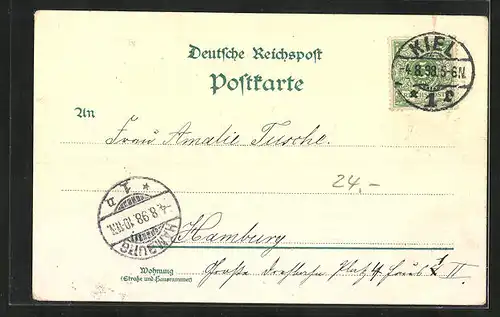 Deutsche Reichspost
Postkarte
KIEL
-4.8.98.5-6N.
* 1 e
An
Frau Amalie Tusche.
24.-
* 1. n
-4.8.98.10-11N.
HAMBURG
Hamburg
Wohnung
(Straße und Hausnummer)
Große Drehbahn Platz 4 Haus 1 II